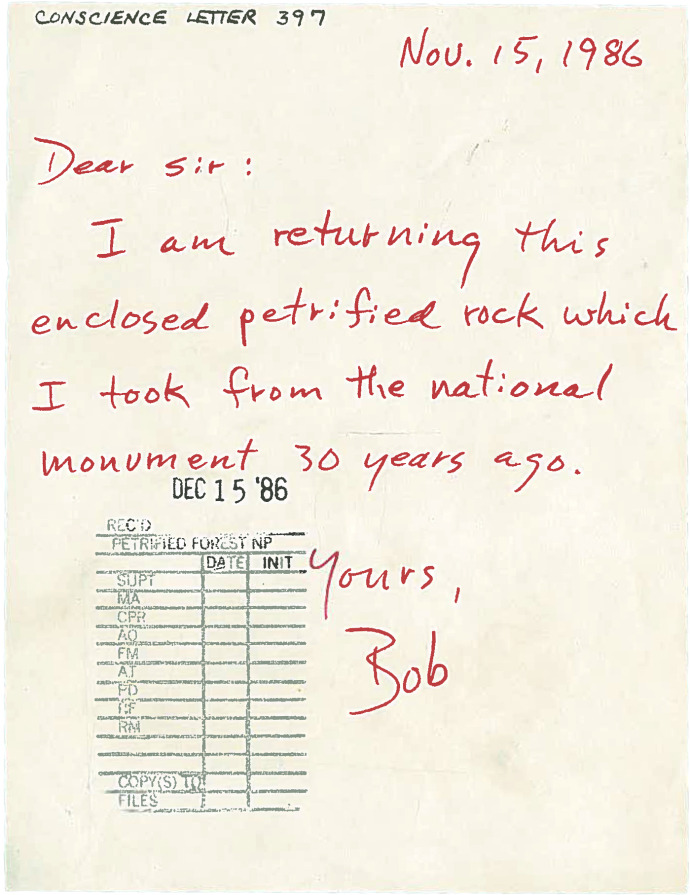 CONSCIENCE LETTER 397
Nov. 15, 1986
Dear sir:
I am returning this
enclosed petrified rock which
I took from the national
monument 30 years ago.
DEC 15 '86
REC'D
PETRIFIED FOREST NP
DATE INIT
SUPT
MA
CPR
AO
FM
AT
PD
CF
RM
COPY(S) TO
FILES
Yours,
Bob